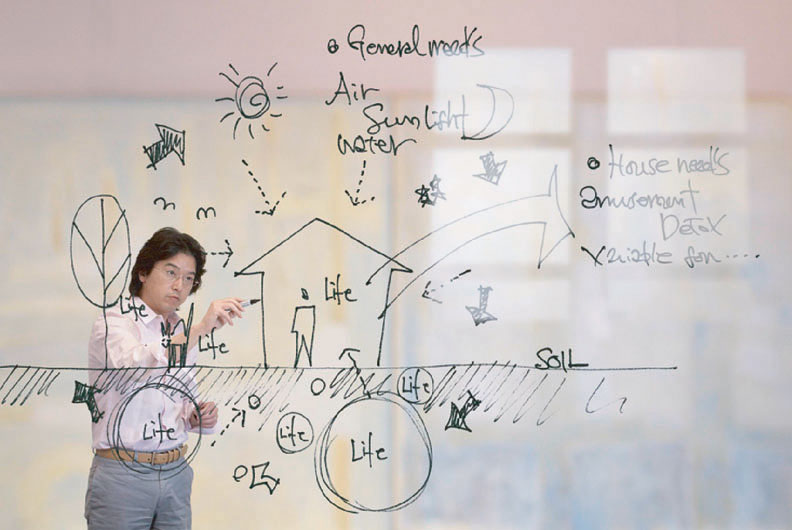 General need's
Air
Sunlight
water
House need's
amusement
Detox
Life
Life
Life
SOIL
Life
Life
Life
Life